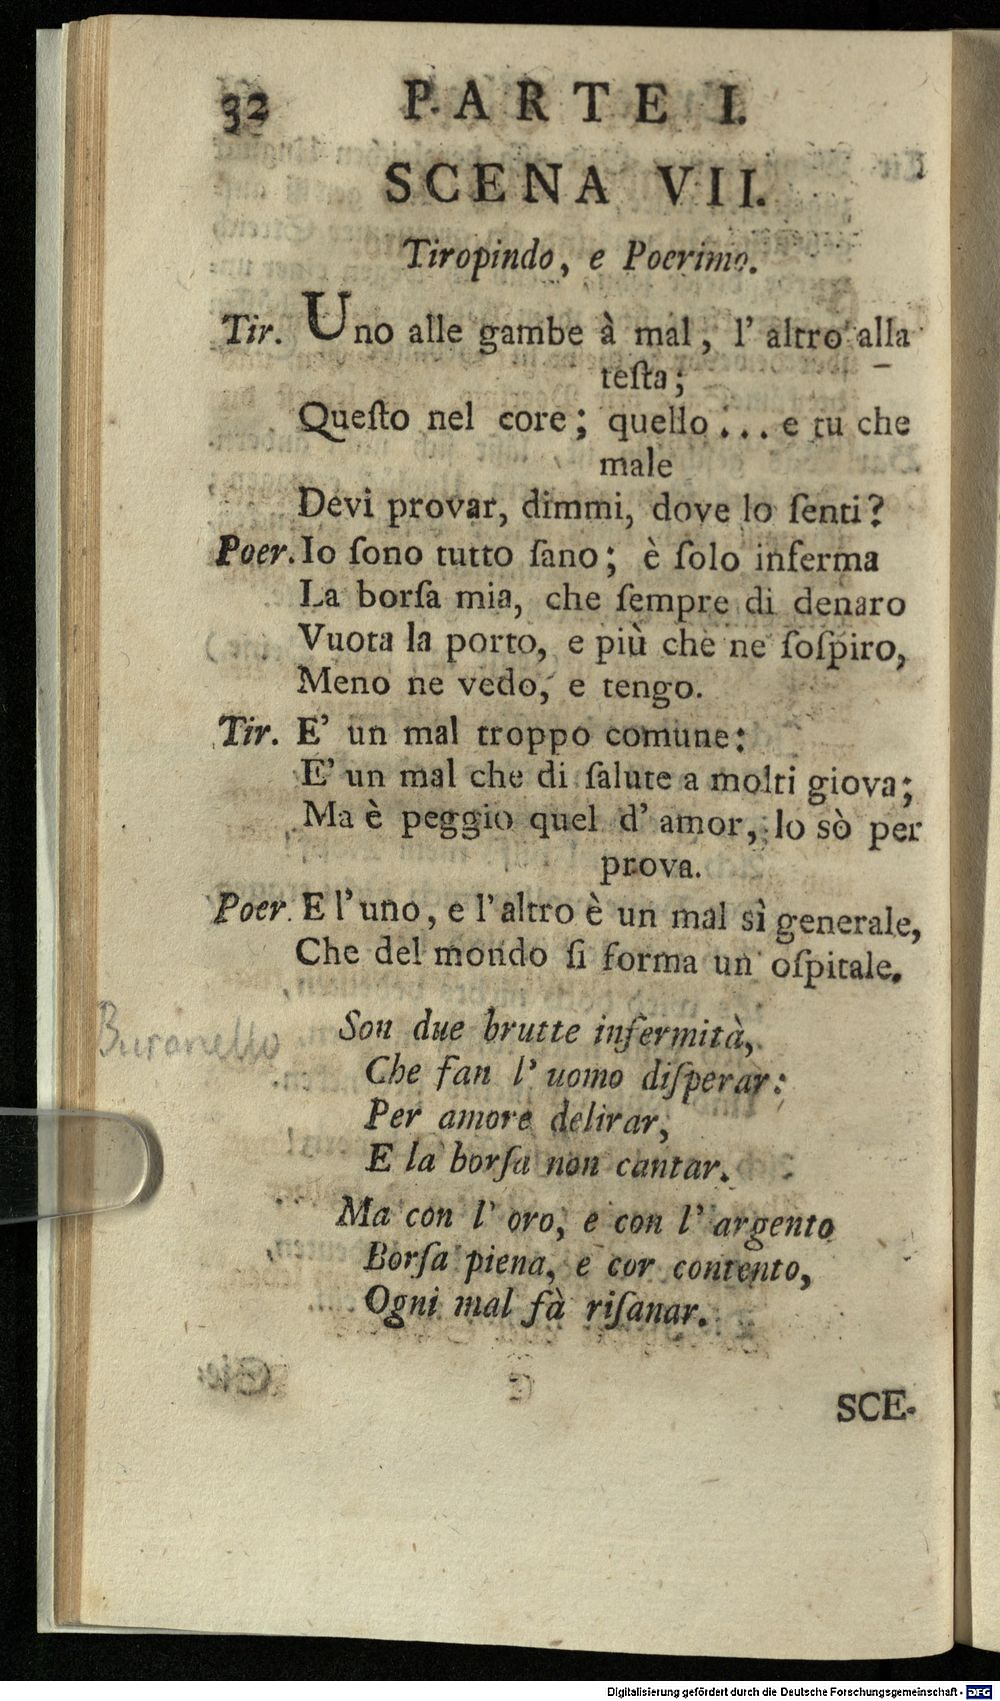 32 PARTE I.
SCENA VII.
Tiropindo, e Poerimo.
Tir. Uno alle gambe à mal, l' altro alla
teſta;
Queſto nel core; quello... e tu che
male
Devi provar, dimmi, dove lo ſenti?
Poer. Io ſono tutto ſano; è ſolo inferma
La borſa mia, che ſempre di denaro
Vuota la porto, e più che ne ſoſpiro,
Meno ne vedo, e tengo.
Tir. E' un mal troppo comune:
E' un mal che di ſalute a molti giova;
Ma è peggio quel d' amor, lo sò per
prova.
Poer. E l'uno, e l'altro è un mal sì generale,
Che del mondo ſi forma un oſpitale.
Son due brutte infermità,
Buranello
Che fan l' uomo diſperar:
Per amore delirar,
E la borſa non cantar.
Ma con l' oro, e con l' argento
Borſa piena, e cor contento,
Ogni mal fà riſanar.
SCE-
Digitalisierung gefördert durch die Deutsche Forschungsgemeinschaft - DFG